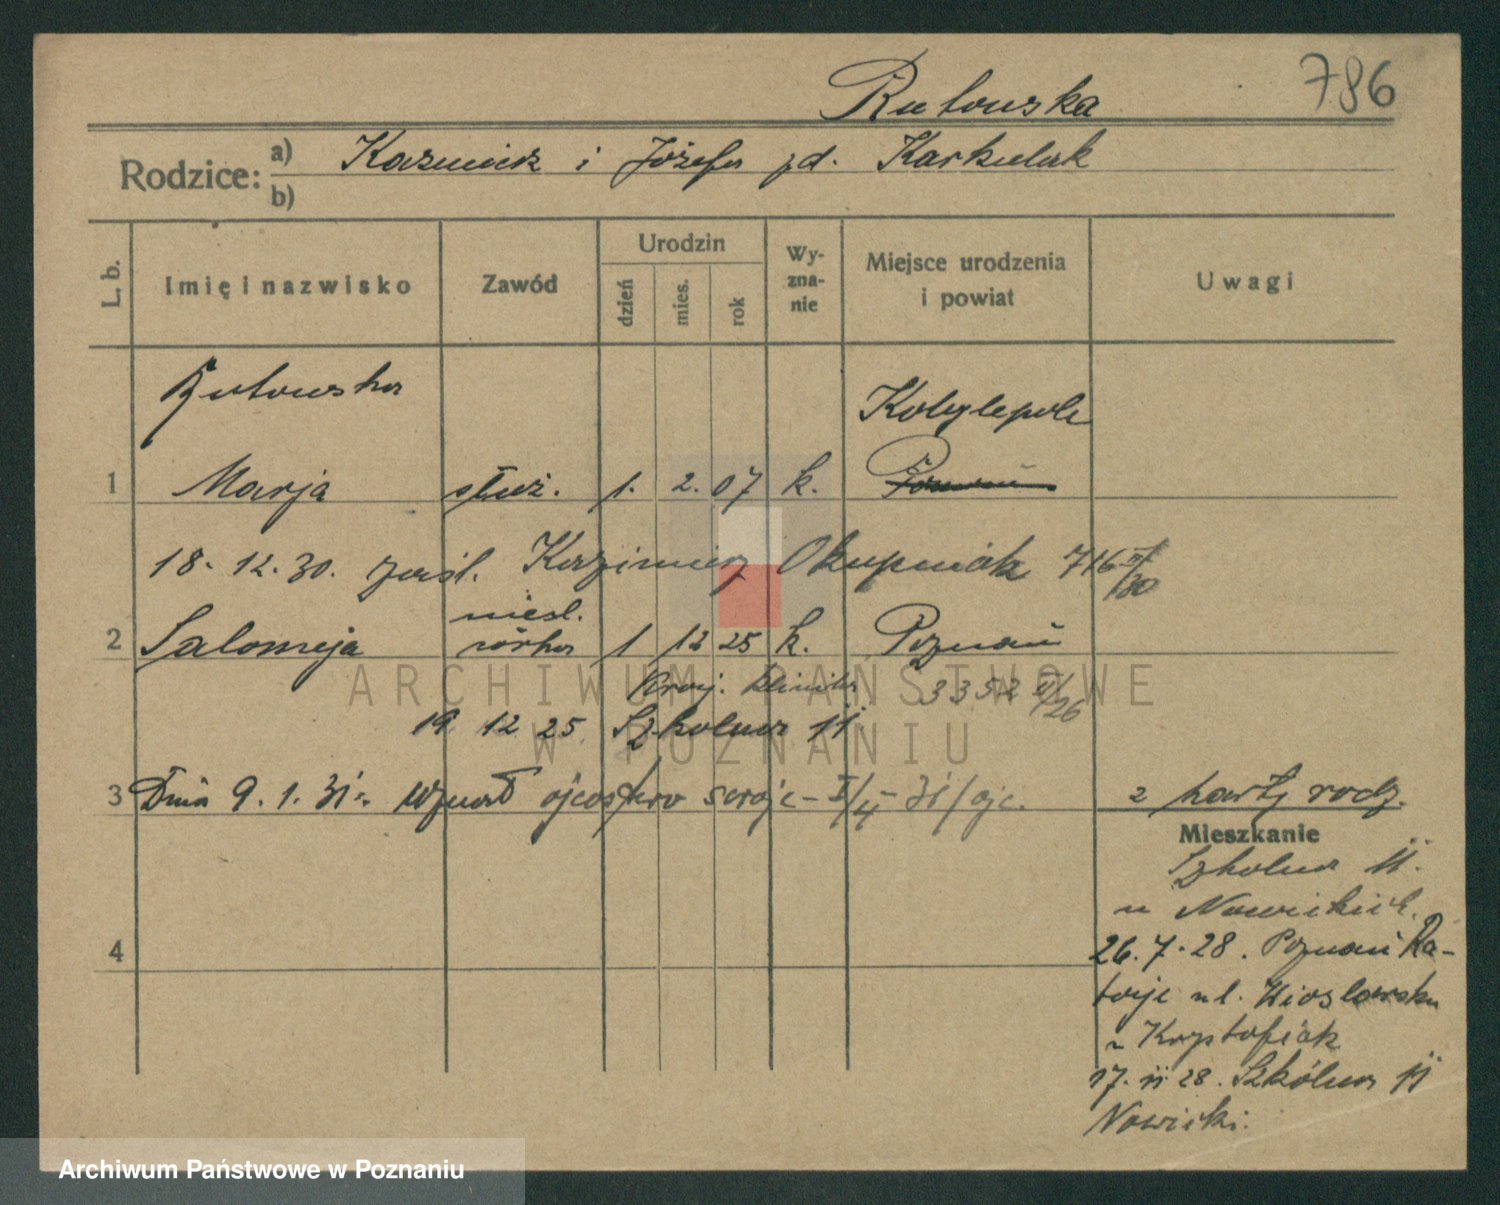 786
Rutowska
Rodzice:
a) Kazmierz i Józefa zd. Karkulak
b)
L. b.
Imię i nazwisko
Zawód
Urodzin
dzień
mies.
rok
Wy-
zna-
nie
Miejsce urodzenia
i powiat
Uwagi
Rutowska
Kobylepole
1 Marja służ. 1. 2. 07 k. Poznań
18. 12. 30. zaśl. Kazimierz Okupniak 716 II/30
niesl.
2 Salomeja córka 1 12 25 k. Poznań
Kraj. klinika 3352 II/26
19 12 25 Szkolna 11
3 Dnia 9. 1. 31 r. uznał ojcostwo swoje - I/II 31/ojc.
2 karty rodz.
Mieszkanie
Szkolna 11.
u Nowickich.
4
26. 7. 28. Poznań Ra-
taje ul. Wioślarska
u Krysztofiak
17. 11 28. Szkólna 11
Nowicki.
ARCHIWUM PAŃSTWOWE
W POZNANIU
Archiwum Państwowe w Poznaniu